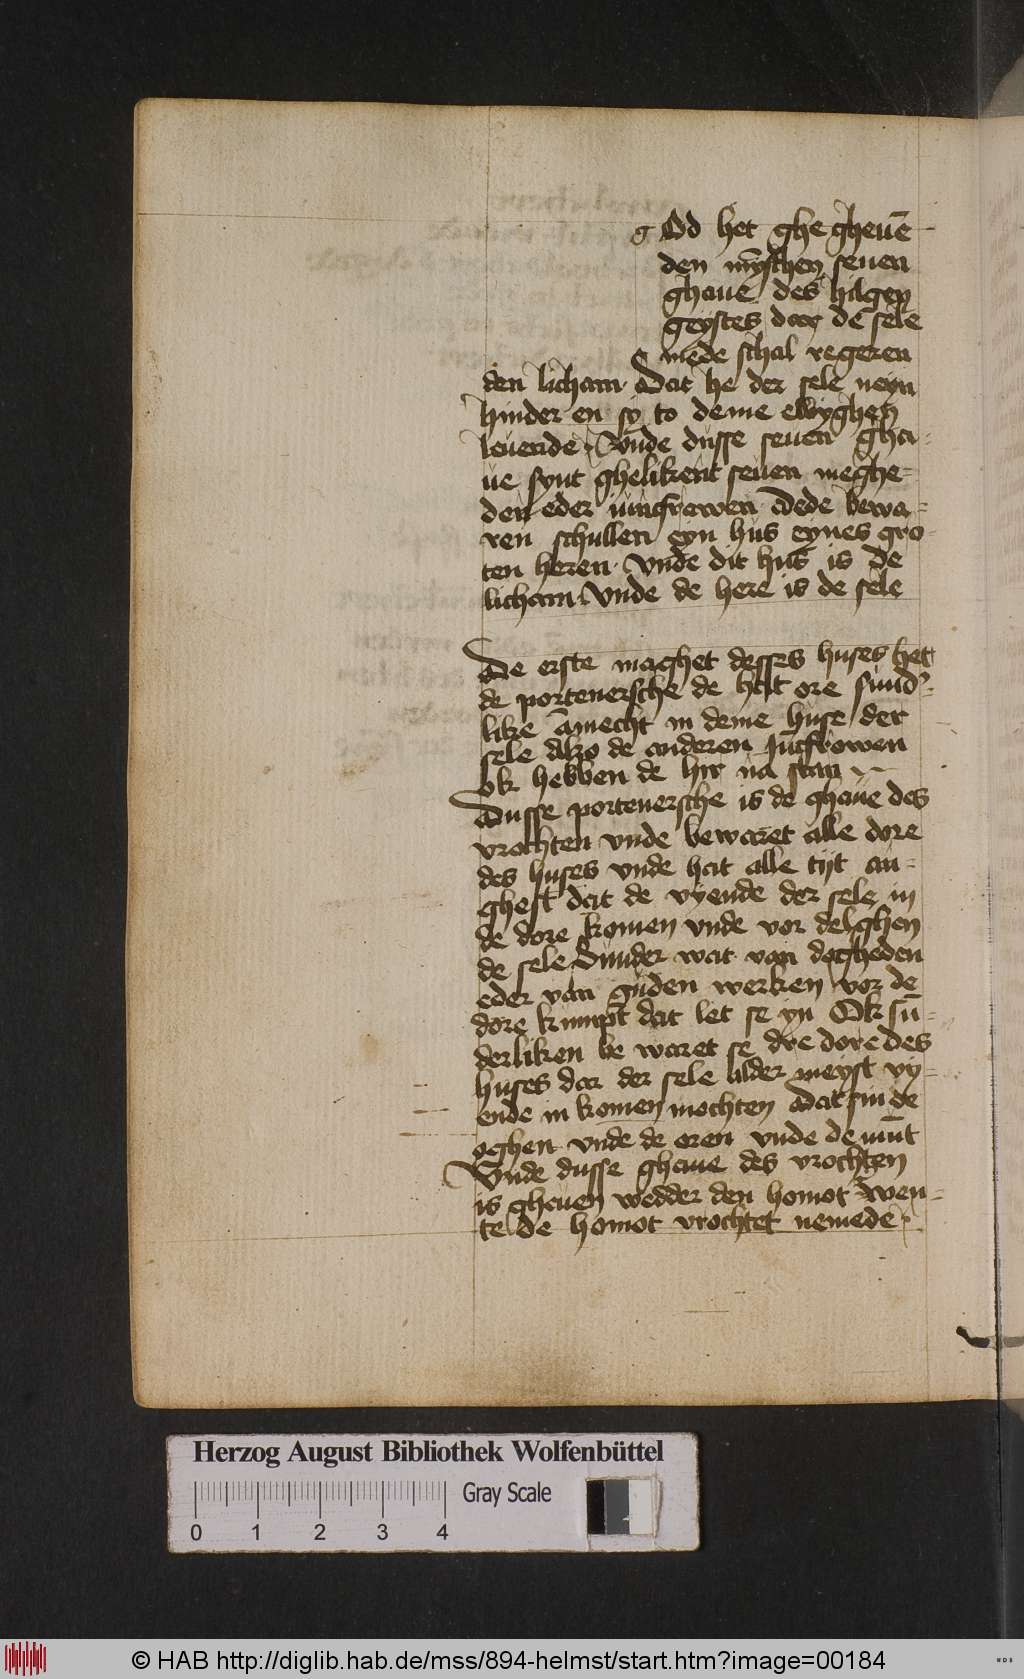 g Od het ghe gheuē
den mȳschen seuen
ghaue des hilgen
geystes dar de sele
mede schal regeren
den licham · Dat he der sele neyn
hinder en sy to deme ewyghen
leuende · Vnde dusse seuen gha-
ue synt ghelikent seuen meghe-
den eder iuncfrowen Dede bewa-
ren schullen eyn hus eynes gro-
ten heren · Vnde dit hus is de
licham · Vnde de here is de sele
De erste maghet desses huses het
de portenersche de hat ore sund'-
like āmecht in deme huse der
sele Also de anderen Jūcfrowen
ok hebben de hir na stan
Dusse portenersche is de ghaue des
vrochten vnde bewaret alle dore
des huses vnde hat alle tijt an-
ghest dat de vyende der sele in
de dore komen vnde vor delghen
de sele Sunder wat van dogheden
eder van guden werken vor de
dore kumpt dat let se yn Ok sū-
derliken be waret se dre dore des
huses dar der sele alder meyst vy-
ende in komen mochten Dat sin de
oghen vnde de oren vnde de mūt
Vnde dusse ghaue des vrochten
is gheuen wedder den homot wen-
te de homot vrochtet nemede ·
Herzog August Bibliothek Wolfenbüttel
Gray Scale
0 1 2 3 4
© HAB http://diglib.hab.de/mss/894-helmst/start.htm?image=00184